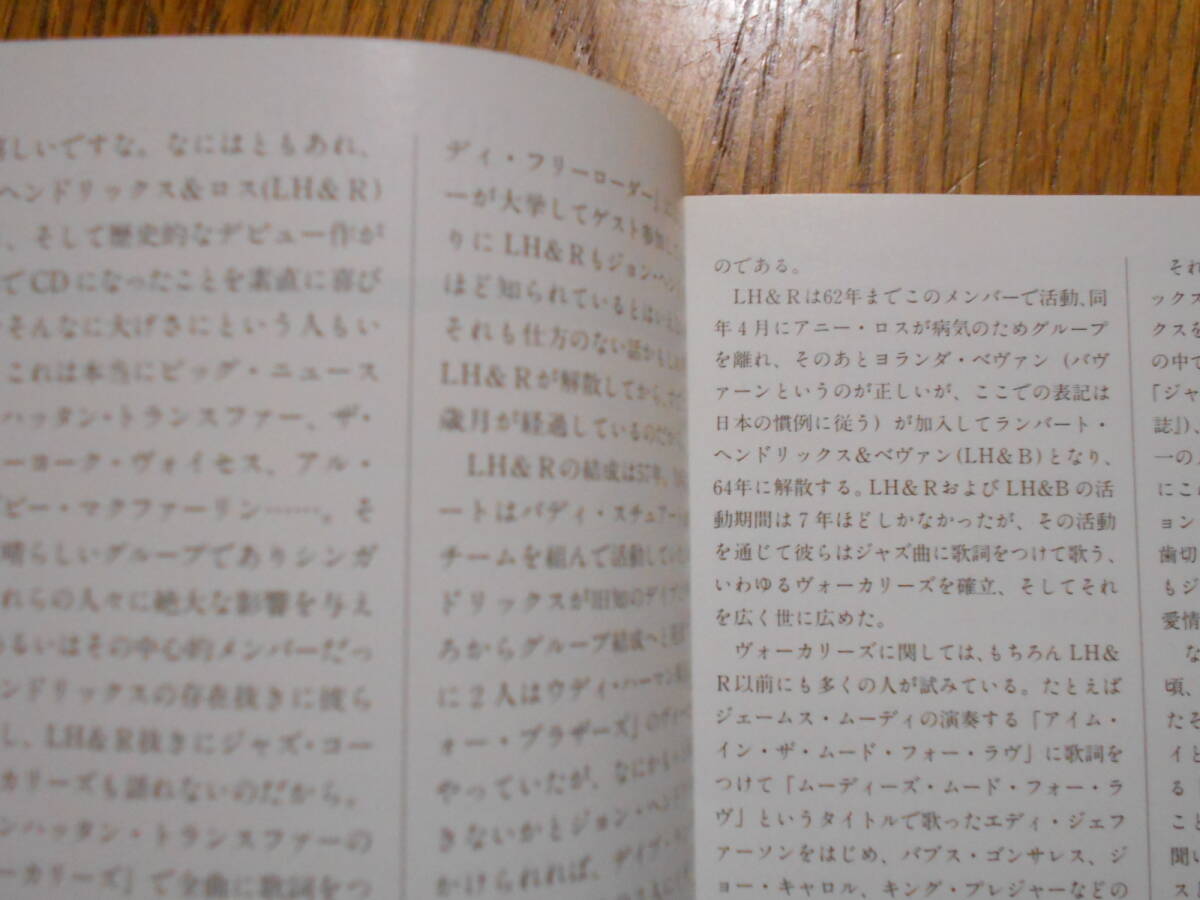 しいですな。なにはともあれ、
ヘンドリックス&ロス(LH&R)
、そして歴史的なデビュー作が
でCDになったことを素直に喜び
そんなに大げさにという人もい
これは本当にビッグ・ニュース
ハッタン・トランスファー、ザ・
ーヨーク・ヴォイセス、アル・
ビー・マクファーリン……。そ
晴らしいグループでありシンガ
れらの人々に絶大な影響を与え
るいはその中心的メンバーだっ
ンドリックスの存在抜きに彼ら
し、LH&R抜きにジャズ・コー
カリーズも語れないのだから。
ンハッタン・トランスファーの
ーカリーズ』で全曲に歌詞をつ
ディ・フリーローダー
ーが大挙してゲスト参加し
りにLH&Rもジョン・ヘン
ほど知られているとはいえ
それも仕方のない話かもしれ
LH&Rが解散してから、
歳月が経過しているのだから
LH&Rの結成は57年。
ートはバディ・スチュアー
チームを組んで活動してい
ドリックスが旧知のデイブ
ろからグループ結成へと
に2人はウディ・ハーマン
ォー・ブラザーズ」の
やっていたが、なにか
きないかとジョン・ヘンド
かけられれば、デイブ・
のである。
LH&Rは62年までこのメンバーで活動、同
年4月にアニー・ロスが病気のためグループ
を離れ、そのあとヨランダ・ベヴァン(バヴ
ァーンというのが正しいが、ここでの表記は
日本の慣例に従う)が加入してランバート・
ヘンドリックス&ベヴァン(LH&B)となり、
64年に解散する。LH&RおよびLH&Bの活
動期間は7年ほどしかなかったが、その活動
を通じて彼らはジャズ曲に歌詞をつけて歌う、
いわゆるヴォーカリーズを確立、そしてそれ
を広く世に広めた。
ヴォーカリーズに関しては、もちろんLH&
R以前にも多くの人が試みている。たとえば
ジェームス・ムーディの演奏する「アイム・
イン・ザ・ムード・フォー・ラヴ」に歌詞を
つけて「ムーディーズ・ムード・フォー・ラ
ヴ」というタイトルで歌ったエディ・ジェフ
ァーソンをはじめ、バブス・ゴンサレス、ジ
ョー・キャロル、キング・プレジャーなどの
それ
ックス
クスを
の中で
『ジャ
誌』)、
一の
にこ
ョン
歯切
もジ
愛情
な
頃、
たそ
イと
る
こと
聞い
スト